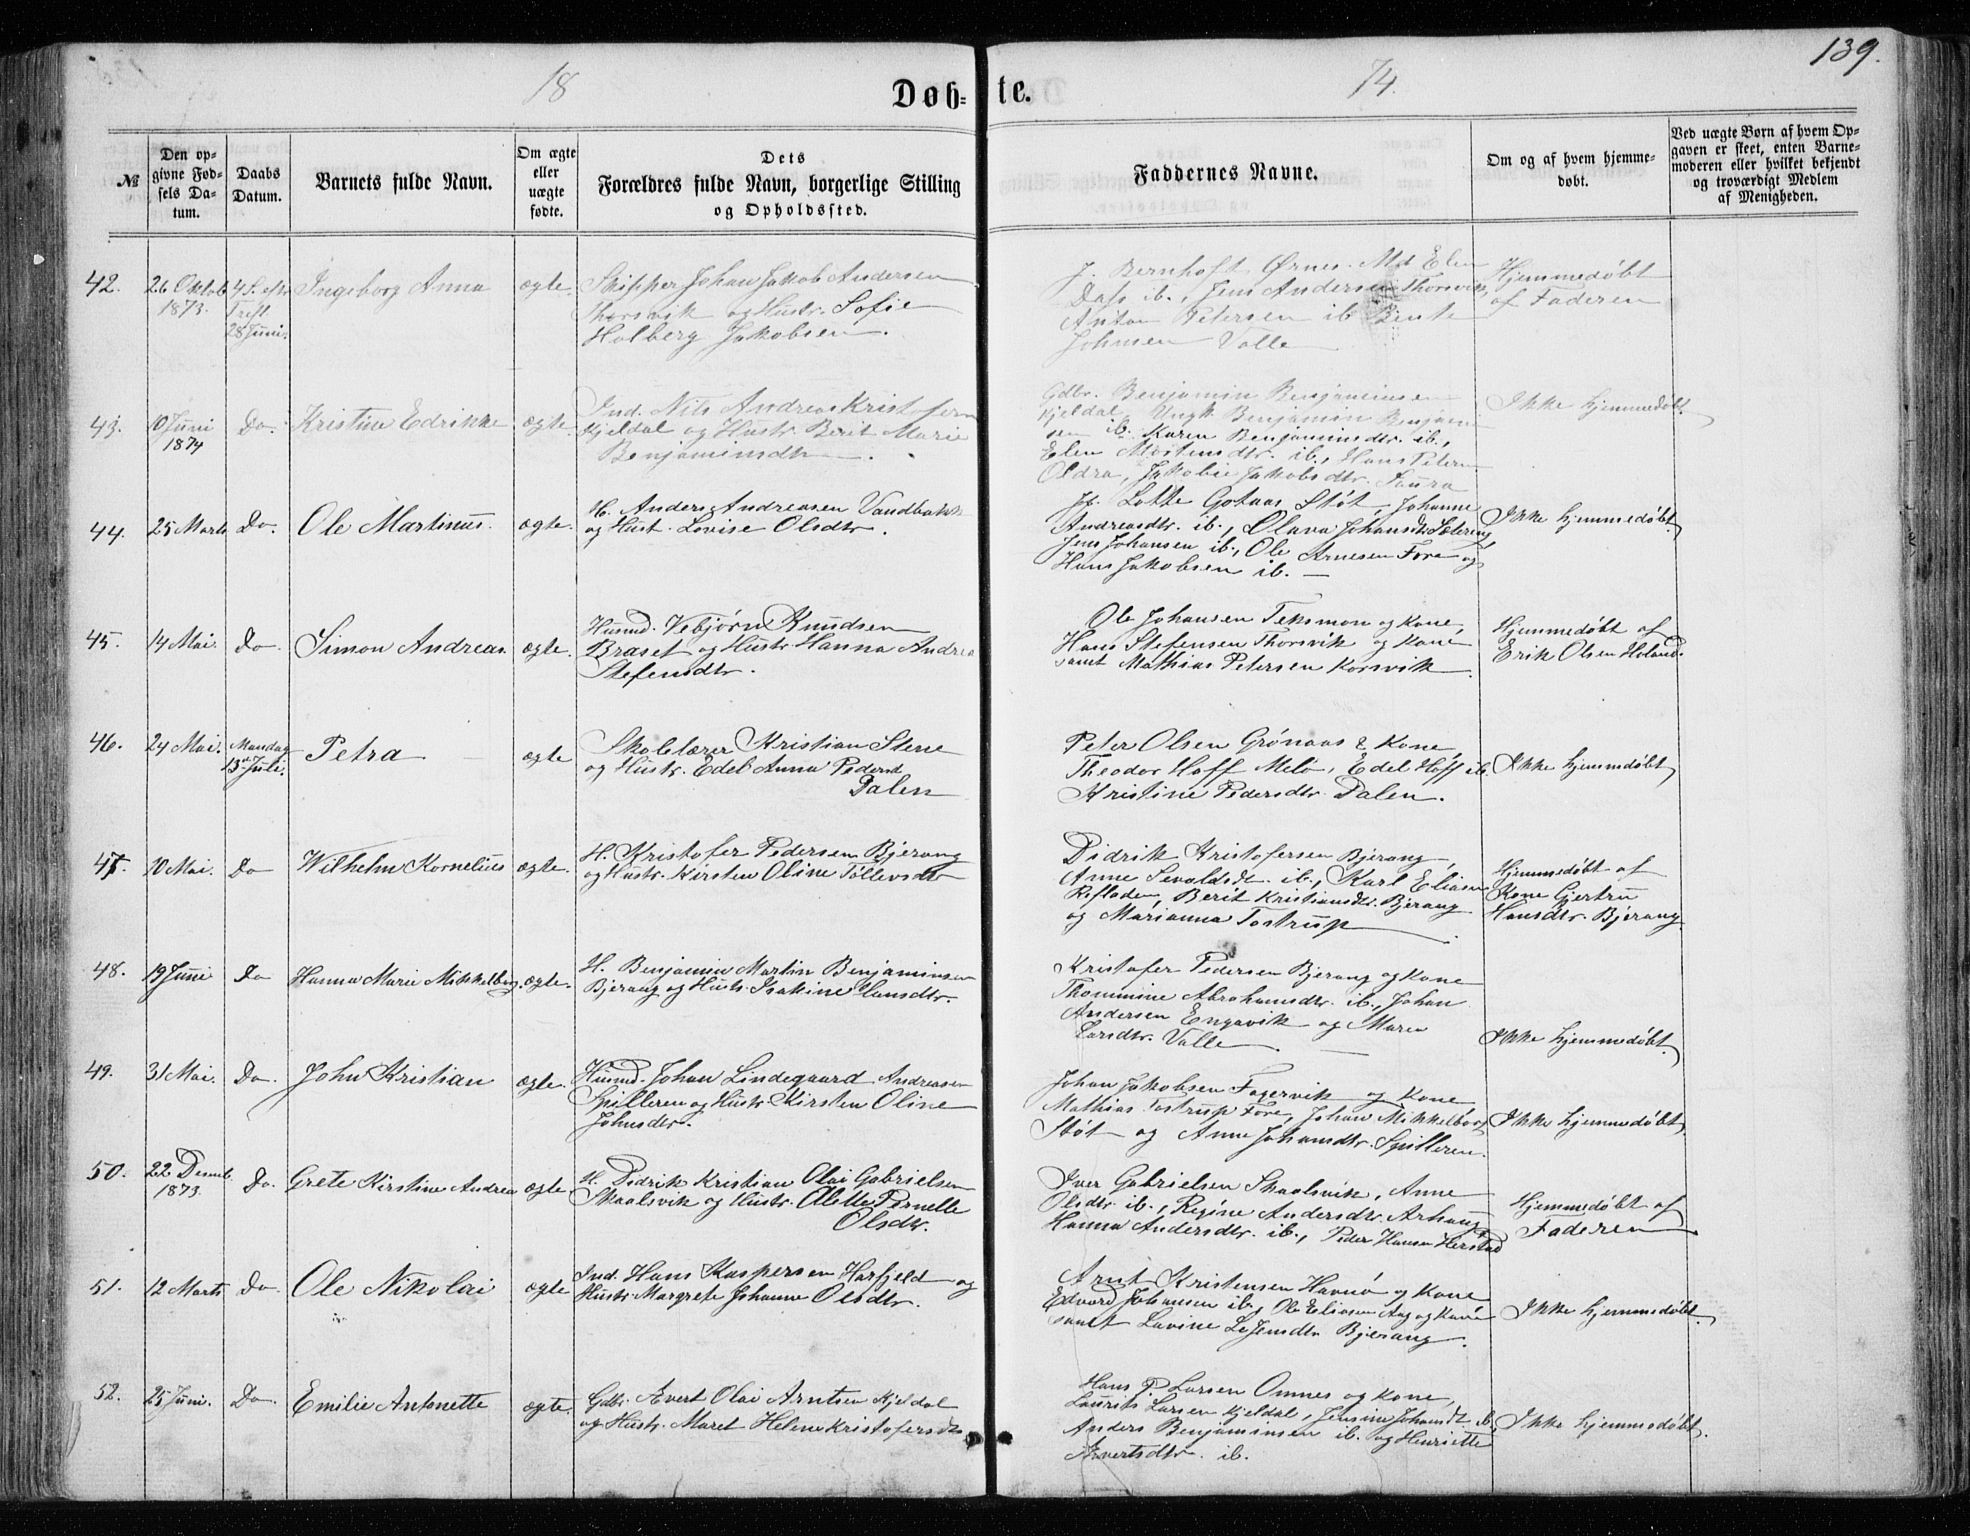 139.
18 74.
Døb=te.
№
Den op-
givne Fød-
sels Da-
tum.
Daabs
Datum.
Barnets fulde Navn.
Om ægte
eller
uægte
fødte.
Dets
Forældres fulde Navn, borgerlige Stilling
og Opholdssted.
Faddernes Navne.
Om og af hvem hjemme-
døbt.
Ved uægte Børn af hvem Op-
gaven er skeet, enten Barne-
moderen eller hvilket bekjendt
og troværdigt Medlem
af Menigheden.
42.
26 Oktob
1873.
4 S. eftr
Trefl
28 Juni.
Ingeborg Anna
ægte.
Skipper Johan Jakob Andersen
Thorsvik og Hustr. Sofie
Holberg Jakobsen.
J. Bernhoft Ørnes. Md Elen
Dass ib., Jens Andersen Thorsvik,
Anton Petersen ib Bent
Johnsen Valle
Hjemmedøbt
af Faderen
43.
10 Juni
1874
Do.
Kristine Edrikke
ægte.
Ind. Nils Andreas Kristofersen
Kjeldal og Hustr. Berit Marie
Benjaminsdtr.
Gdbr. Benjamin Benjaminsen
Kjeldal, Ungk. Benjamin Benjamin
sen ib. Karen Benjaminsdtr. ib.,
Elen Mortensdtr. ib., Hans Peter
Oldra, Jakobie Jakobsdtr. Saura
Ikke hjemmedøbt.
44.
25 Marts
Do.
Ole Martinus.
ægte.
H. Anders Andreasen Vandbakk
og Hust. Lovise Olsdtr.
Jf. Lotte Gotaas Støt, Johanne
Andreasdtr. ib., Olava Johansdtr Sætereng,
Jens Johansen ib., Ole Arnesen Fore og
Hans Jakobsen ib.
Ikke hjemmedøbt.
45.
14 Mai.
Do
Simon Andreas
ægte.
Husmd. Vebjørn Knudsen
Braset og Hustr Hanna Andrea
Stefensdtr.
Ole Johansen Teksmon og Kone,
Hans Stefensen Thorsvik og Kone
samt Mathias Petersen Korsvik.
Hjemmedøbt af
Erik Olsen Holand.
46.
24 Mai.
Mandag
13de Juli.
Petra
ægte
Skolelærer Kristian Stene
og Hustr. Edel Anna Pedersd
Dalen
Peter Olsen Grønaas & Kone,
Theodor Hoff Melø, Edel Hoff ib.
Kristine Pedersdtr. Dalen.
Ikke hjemmdøbt
47.
10 Mai.
Do
Wilhelm Kornelius
ægte.
H. Kristofer Pedersen Bjerang
og Hustr. Kirsten Oline Tollevsdtr
Didrik Kristofersen Bjerang,
Anne Sevaldsdt. ib., Karl Eliasen
Reflader, Berit Kristiansdtr. Bjerang
og Marianna Tostrup
Hjemmedøbt af
Kone Gjertru
Hansdtr. Bjerang.
48.
19 Juni
Do
Hanna Marie Mikkelborg.
ægte.
H. Benjamin Martin Benjaminsen
Bjerang og Hustr. Isakine Hansdtr.
Kristofer Pedersen Bjerang og Kone
Thommine Abrahamsdtr. ib., Johan
Andersen Engavik og Maren
Larsdtr. Valle
Ikke hjemmedøbt.
49.
31 Mai.
Do.
John Kristian
ægte.
Husmd. Johan Lindegaard Andreasen
Spilleren og Hustr Kirsten Oline
Johnsdtr.
Johan Jakobsen Fagervik og Kone
Mathias Tostrup Fore, Johan Mikkelborg
Støt og Anne Johansdtr. Spilleren.
Ikke hjemmedøbt.
50.
22 Desemb.
1873.
Do.
Grete Kirstine Andrea
ægte
H. Didrik Kristian Olai Gabrielsen
Skaalsvik og Hustr. Alette Pernelle
Olsdtr.
Iver Gabrielsen Skaalsvik, Anne
Olsdtr ib., Regine Andersdtr. Arhaug,
Hanna Andersdtr. ib., Peder Hansen Herstad
Hjemmedøbt af
Faderen
51.
12 Marts
Do.
Ole Nikolai
ægte
Ind. Hans Kaspersen Harfjeld og
Hustr. Margrete Johanne Olsdtr.
Arnt Kristensen Havnø og Kone
Edvard Johansen ib., Ole Eliasen Aag og Kone
samt Lavine Jensdtr Bjerang.
Ikke hjemmedøbt.
52.
25 Juni.
Do.
Emilie Antonette
ægte.
Gdbr. Evert Olai Arntsen Kjeldal
og Hustr. Maret Helene Kristofersdtr
Hans P. Larsen Omnes og Kone,
Laurits Larsen Kjeldal, Jensine Johansdt ib.,
Anders Benjaminsen ib. og Henriette
Evertsdtr. ib.
Ikke hjemmedøbt.